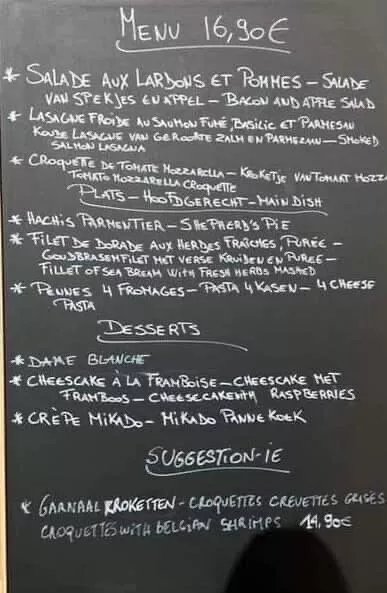 MENU 16,90€
* SALADE AUX LARDONS ET POMMES – SALADE
VAN SPEKJES EN APPEL – BACON AND APPLE SALAD
* LASAGNE FROIDE AU SAUMON FUMÉ, BASILIC ET PARMESAN
KOUDE LASAGNE VAN GEROOKTE ZALM EN PARMEZAN – SMOKED
SALMON LASAGNA
* CROQUETTE DE TOMATE MOZZARELLA – KROKETJE VAN TOMAAT MOZZ
TOMATO MOZZARELLA CROQUETTE
PLATS – HOOFDGERECHT – MAIN DISH
* HACHIS PARMENTIER – SHEPHERD'S PIE
* FILET DE DORADE AUX HERBES FRAÎCHES, PURÉE –
GOUDBRASEMFILET MET VERSE KRUIDEN EN PUREE –
FILLET OF SEA BREAM WITH FRESH HERBS MASHED
* PENNES 4 FROMAGES – PASTA 4 KASEN – 4 CHEESE
PASTA
DESSERTS
* DAME BLANCHE
* CHEESCAKE À LA FRAMBOISE – CHEESCAKE MET
FRAMBOOS – CHEESECAKE RASPBERRIES
* CRÈPE MIKADO – MIKADO PANNEKOEK
SUGGESTION-IE
* GARNAALKROKETTEN – CROQUETTES CREVETTES GRISES
CROQUETTES WITH BELGIAN SHRIMPS 14,90€